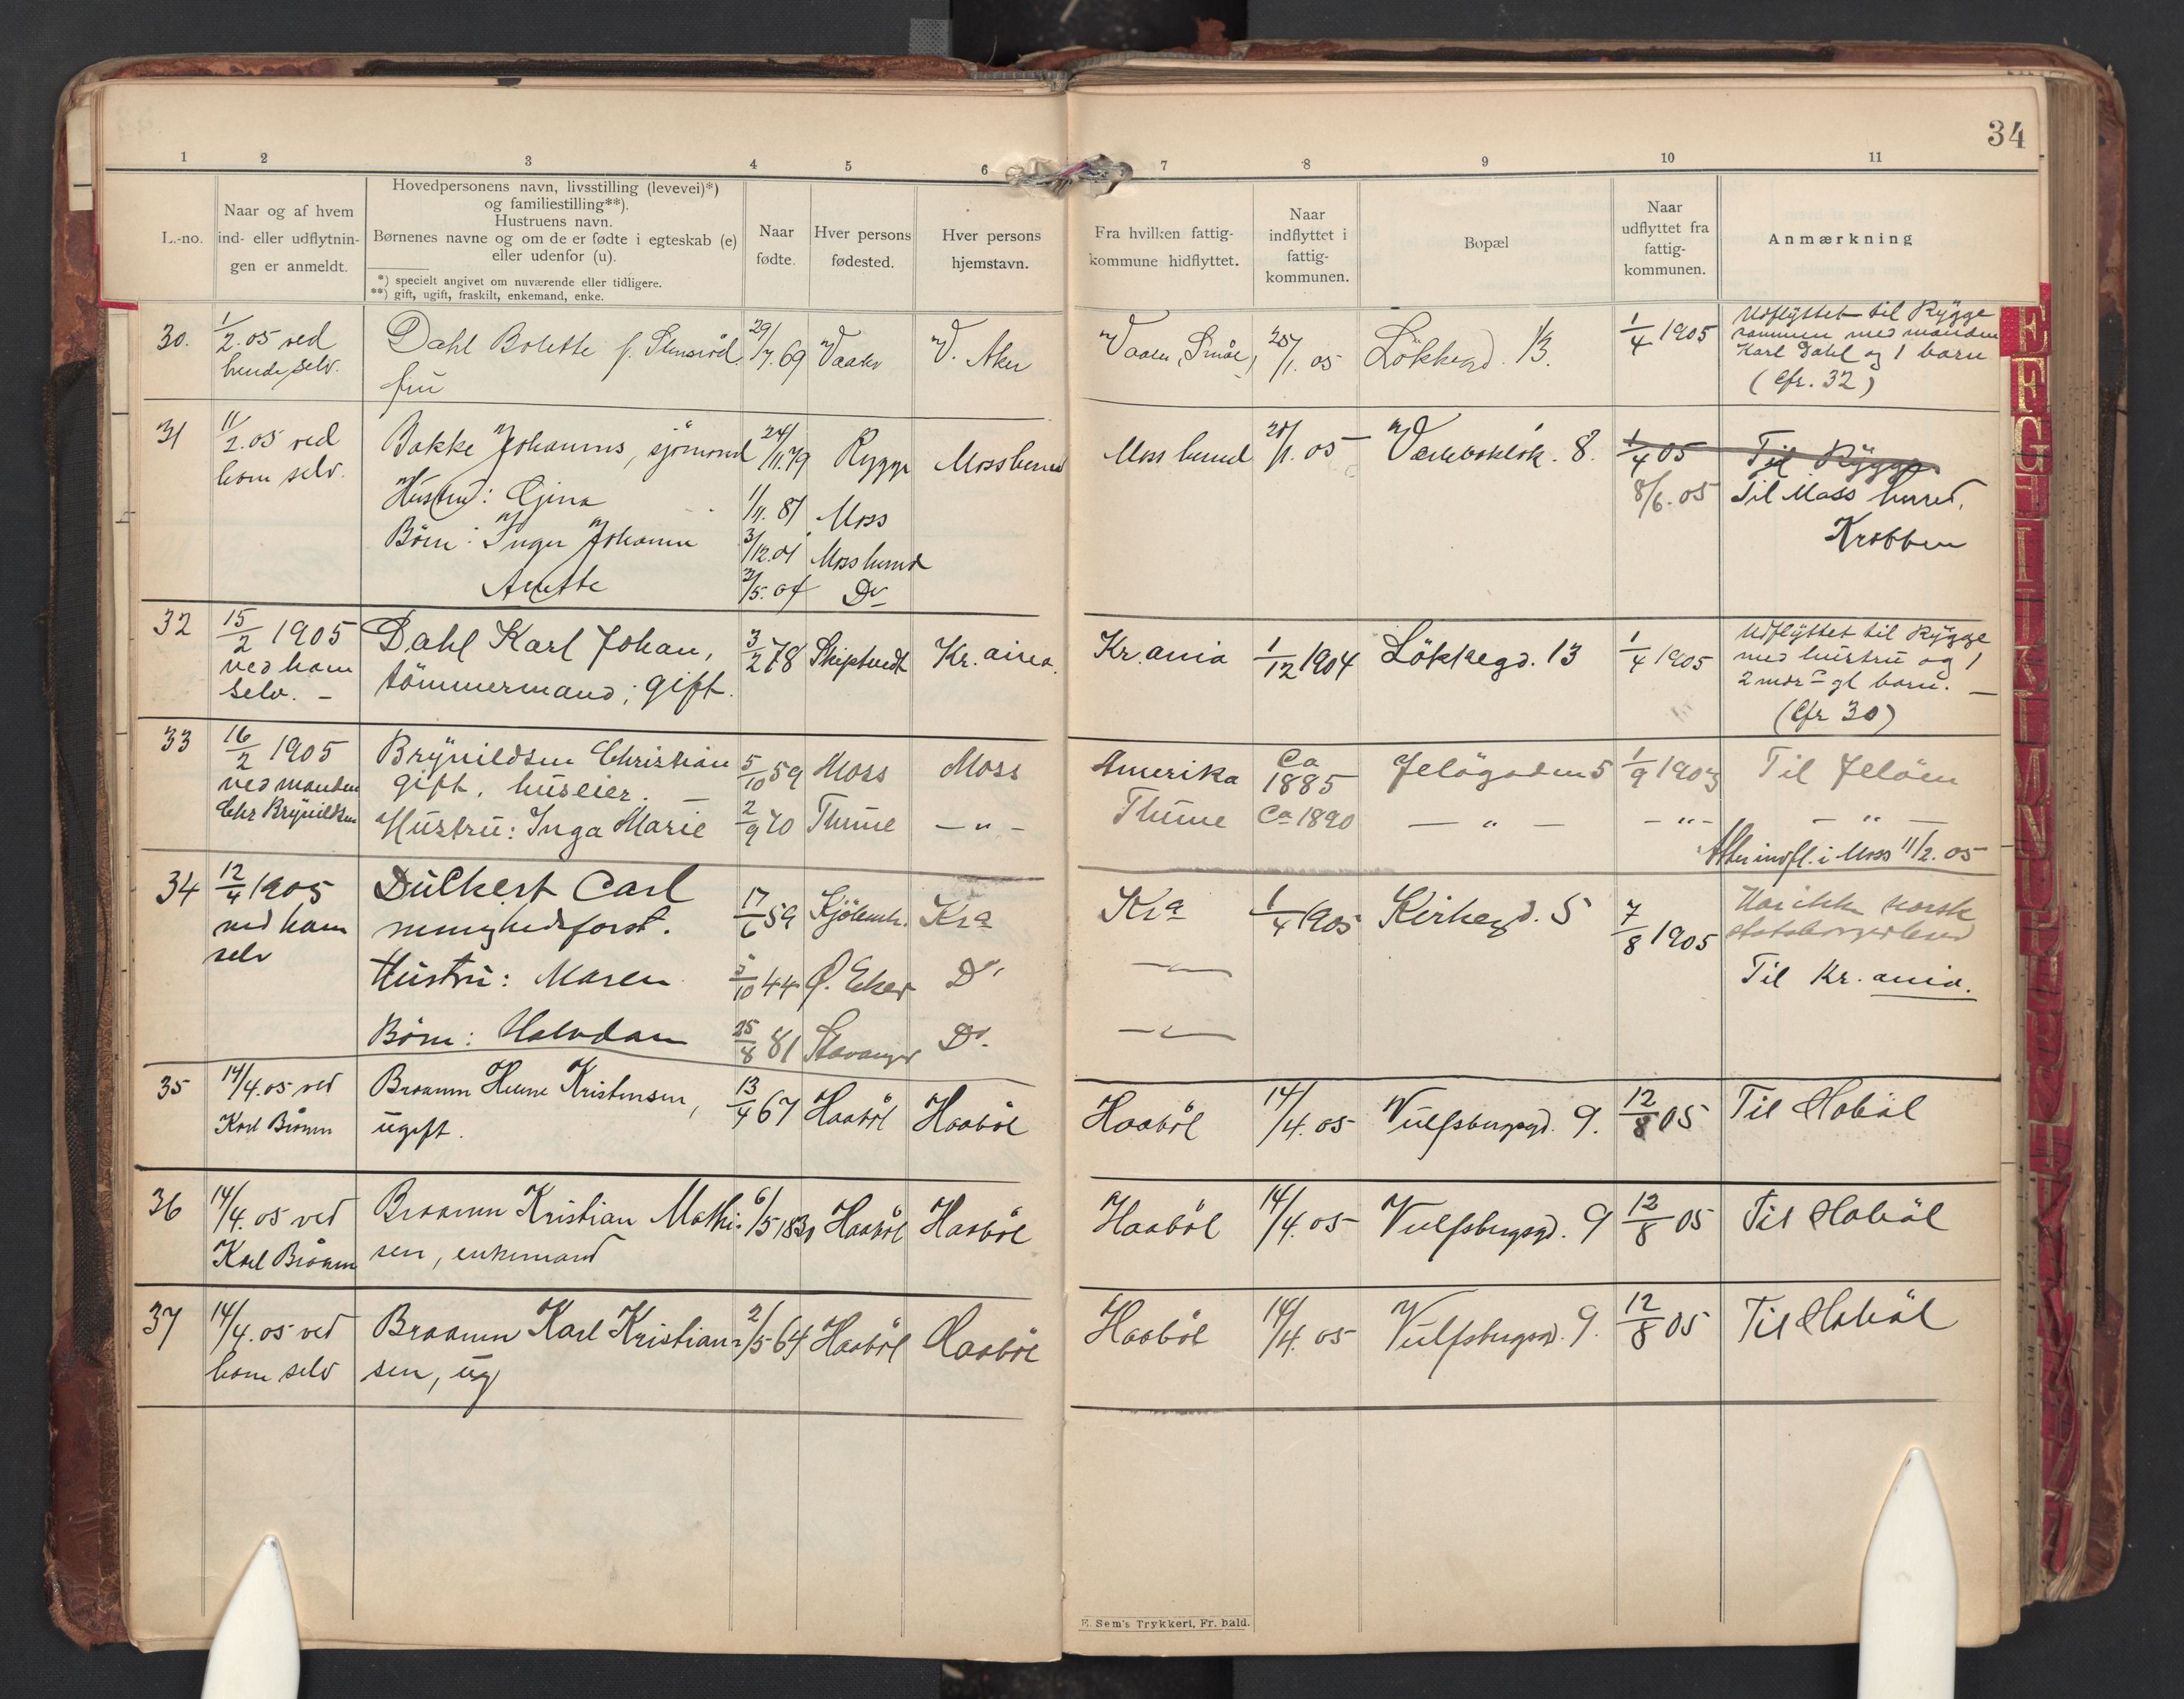 34
1 2 3 4 5 6 7 8 9 10 11
L.-no.
Naar og af hvem
ind- eller udflytnin-
gen er anmeldt.
Hovedpersonens navn, livsstilling (levevei)*)
og familiestilling**).
Hustruens navn.
Børnenes navne og om de er fødte i egteskab (e)
eller udenfor (u).
*) specielt angivet om nuværende eller tidligere.
**) gift, ugift, fraskilt, enkemand, enke.
Naar
fødte.
Hver persons
fødested.
Hver persons
hjemstavn.
Fra hvilken fattig-
kommune hidflyttet.
Naar
indflyttet i
fattig-
kommunen.
Bopæl
Naar
udflyttet fra
fattig-
kommunen.
Anmærkning
30.
1/2.05 ved
hende selv.
Dahl Bolette f. Stensrød
fru
29/7.69
Vaaler
V. Aker
Vaaler, Smål,
25/1.05
Lökkegd. 13.
1/4 1905
Udflyttet til Rygge
sammen med manden
Karl Dahl og 1 barn
(Cfr. 32)
31
11/2.05 ved
ham selv.
Bakke Johannes, sjömand
24/11.79
Rygge
Moss herred
Hustru: Gina
1/11.81
Moss
Börn: Inger Johanne
3/12.01
Moss herred
Anette
3/5.04
Do
Moss herred
28/1.05
Værlebaklök. 8.
1/4 05
Til Rygge
8/6.05
Til Moss herred,
Krobben
32
15/2 1905
ved ham
selv. -
Dahl Karl Johan,
tömmermand; gift.
3/2 78
Skiptvedt
Kr.ania.
Kr.ania
1/12 1904
Lökkegd. 13
1/4 1905
Udflyttet til Rygge
med hustru og 1
2 mdr gl barn. -
(Cfr 30)
33
16/2 1905
ved manden
Chr Brynildsen
Brynildsen Christian
gift, huseier. -
5/10 59
Moss
Moss
Hustru: Inga Marie
2/9 70
Thune
- " -
Amerika
Ca
1885
Jelögaden 5
1/9 1903
Til Jelöen
Thune
Ca 1890
- " -
- " -
- " -
Atter indfl. i Moss 11/2.05
34
12/4 1905
ved ham
selv
Dulkert Carl
menighedsforst.
17/6 59
Kjöbenh.
Kra
Hustru: Maren
5/10 44
Ø. Eker
Do
Börn: Halvdan
25/8 81
Stavanger
Do.
Kra
1/4 1905
Kirkegd. 5
7/8 1905
Har ikke norsk
statsborgerbrev
Til Kr.ania.
35
14/4.05 ved
Karl Braaum
Braaum Helene Kristensen,
ugift.
13/4 67
Haaböl
Haaböl
Haaböl
14/4.05
Vulfsbergsgd. 9.
12/8 05
Til Haböl
36
14/4.05 ved
Karl Braaum
Braaum Kristian Mathi-
sen, enkemand
6/5 1830
Haaböl
Haaböl
Haaböl
14/4.05
Vulfsbergsgd. 9
12/8 05
Til Haböl
37
14/4.05 ved
ham selv
Braaum Karl Kristian-
sen, ug
2/5 64
Haaböl
Haaböl
Haaböl
14/4.05
Vulfsbergsgd. 9.
12/8 05
Til Haböl
E. Sem's Trykkeri, Fr. hald.